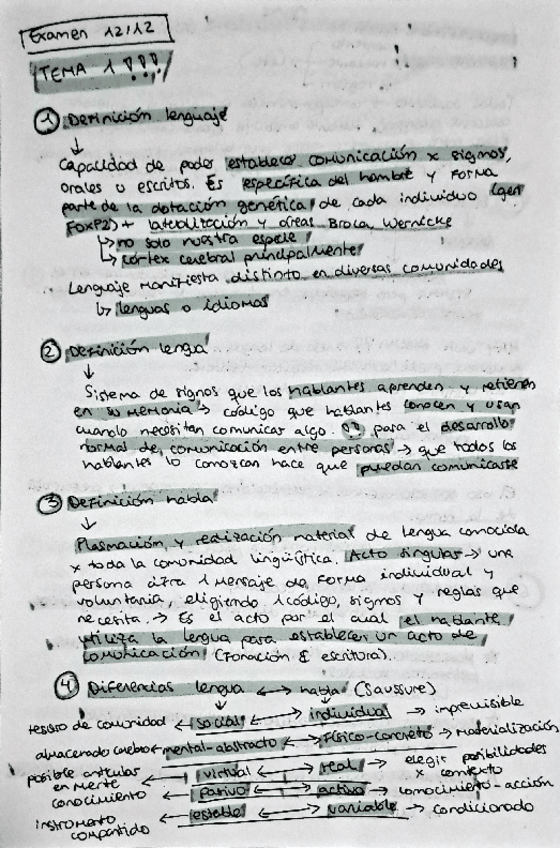 Examen 12/12
TEMA 1 !!!
① Definición lenguaje
↓
Capacidad de poder establecer comunicación x signos,
orales o escritos. Es específica del hombre y forma
parte de la dotación genética de cada individuo (gen
FOXP2) + lateralización y áreas Broca, Wernicke
↳ no solo nuestra especie
↳ córtex cerebral principalmente
Lenguaje manifiesta distinto en diversas comunidades
↳ lenguas o idiomas
② Definición lengua
↓
Sistema de signos que los hablantes aprenden y retienen
en su memoria → código que hablantes conocen y usan
cuando necesitan comunicar algo. !! para el desarrollo
normal de comunicación entre personas → que todos los
hablantes lo conozcan hace que puedan comunicarse
③ Definición habla
↓
Plasmación y realización material de lengua conocida
x toda la comunidad lingüística. Acto singular → una
persona cifra 1 mensaje de forma individual y
voluntaria, eligiendo 1 código, signos y reglas que
necesita. → Es el acto por el cual el hablante
utiliza la lengua para establecer un acto de
comunicación (fonación & escritura).
④ Diferencias lengua ↔ habla (Saussure)
tesoro de comunidad ← social ↔ individual → imprevisible
almacenado cerebro ← mental-abstracto ↔ físico-concreto → materialización
posible articular en mente ← virtual ↔ real → elegir posibilidades x contexto
conocimiento ← pasivo ↔ activo → conocimiento-acción
instrumento compartido ← estable ↔ variable → condicionado